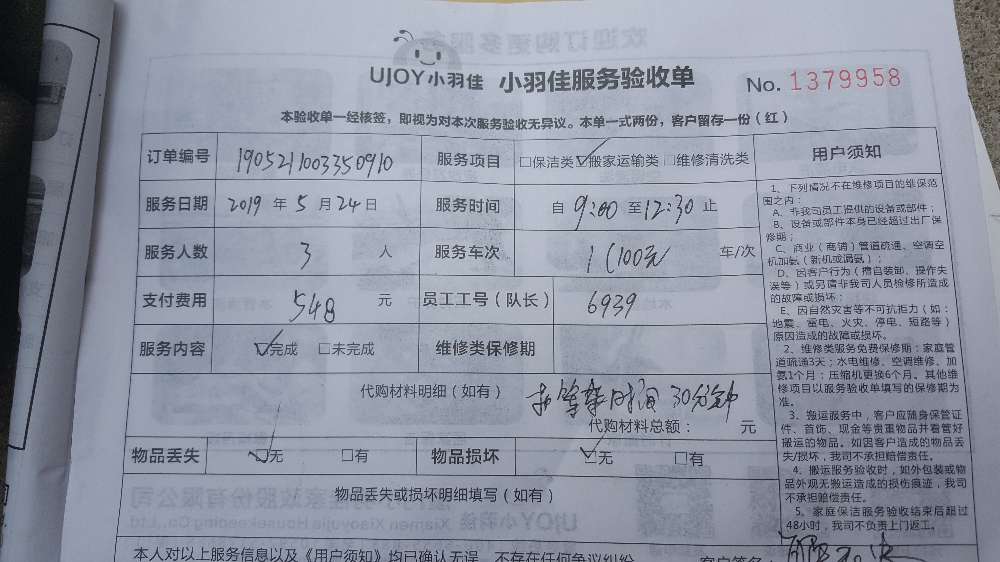 UJOY小羽佳 小羽佳服务验收单 No. 1379958
本验收单一经核签，即视为对本次服务验收无异议。本单一式两份，客户留存一份（红）
订单编号 1905211003350910 服务项目 □保洁类 ☑搬家运输类 □维修清洗类
服务日期 2019 年 5 月 24 日 服务时间 自 9:00 至 12:30 止
服务人数 3 人 服务车次 1（100元 车/次
支付费用 548 元 员工工号（队长） 6939
服务内容 ☑完成 □未完成 维修类保修期
代购材料明细（如有） 时间30分钟
代购材料总额： 元
物品丢失 ☑无 □有 物品损坏 ☑无 □有
物品丢失或损坏明细填写（如有）
本人对以上服务信息以及《用户须知》均已确认无误，不存在任何争议纠纷 客户签名：
用户须知
1、下列情况不在维修项目的维保范
围之内：
A、非我司员工提供的设备或部件；
B、设备或部件本身已经超过出厂保
修期；
C、商业（商铺）管道疏通、空调空
机加氨（新机或漏氨）；
D、因客户行为（擅自装卸、操作失
误等）或另请非我司人员检修所造成
的故障或损坏；
E、因自然灾害等不可抗拒力（如：
地震、雷电、火灾、停电、短路等）
原因造成的故障或损坏。
2、维修类服务免费保修期：家庭管
道疏通3天；水电维修、空调维修、加
氨1个月；压缩机更换6个月。其他维
修项目以服务验收单填写的保修期为
准。
3、搬运服务中，客户应随身保管证
件、首饰、现金等贵重物品并看管好
搬运的物品。如因客户造成的物品丢
失/损坏，我司不承担赔偿责任。
4、搬运服务验收时，如外包装或物
品外观无搬运造成的损伤痕迹，我司
不承担赔偿责任。
5、家庭保洁服务验收结束后超过
48小时，我司不负责上门返工。